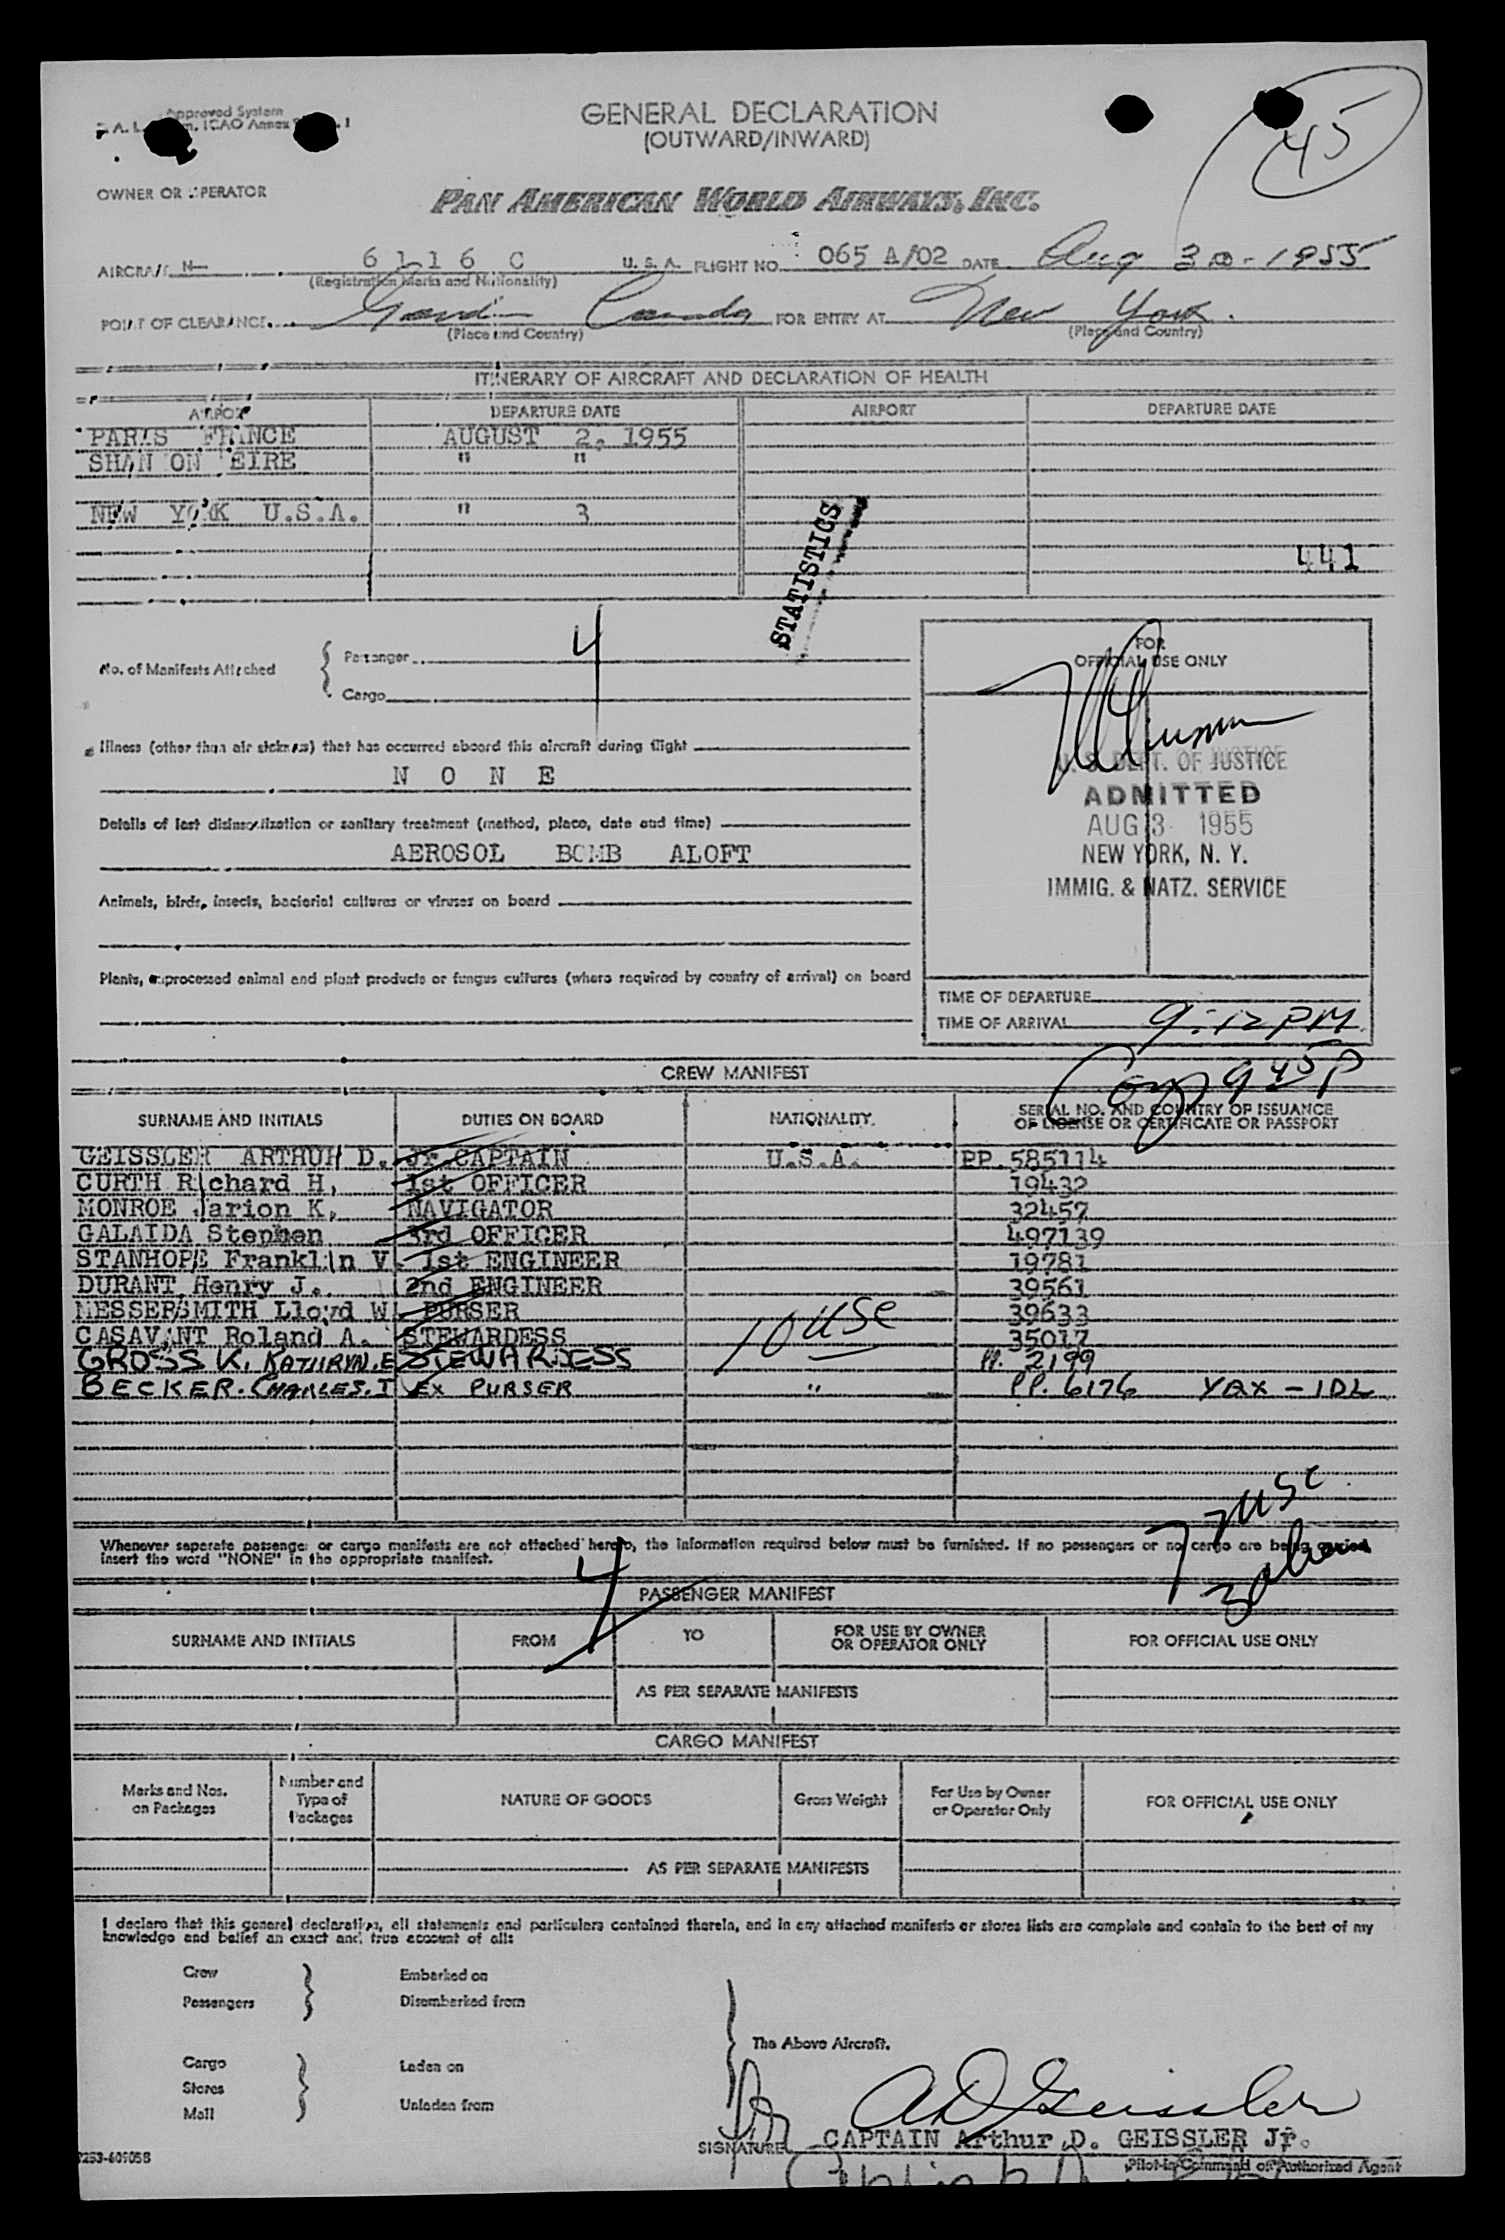 Approved System
ICAO Annex
45
GENERAL DECLARATION
(OUTWARD/INWARD)
OWNER OR OPERATOR
PAN AMERICAN WORLD AIRWAYS, INC.
AIRCRAFT N 6116 C U. S. A. FLIGHT NO. 065 A/02 DATE Aug 1955
(Registration Marks and Nationality)
POINT OF CLEARANCE Canada FOR ENTRY AT New York.
(Place and Country) (Place and Country)
ITINERARY OF AIRCRAFT AND DECLARATION OF HEALTH
AIRPORT DEPARTURE DATE AIRPORT DEPARTURE DATE
PARIS FRANCE AUGUST 2, 1955
SHANNON EIRE " "
NEW YORK U.S.A. " 3
STATISTICS
441
No. of Manifests Attached { Passenger 4
Cargo
FOR
OFFICIAL USE ONLY
Illness (other than air sickness) that has occurred aboard this aircraft during flight
N O N E
U. S. DEPT. OF JUSTICE
ADMITTED
AUG 3 1955
NEW YORK, N. Y.
IMMIG. & NATZ. SERVICE
Details of last disinsectization or sanitary treatment (method, place, date and time)
AEROSOL BOMB ALOFT
Animals, birds, insects, bacterial cultures or viruses on board
Plants, unprocessed animal and plant products or fungus cultures (where required by country of arrival) on board
TIME OF DEPARTURE
TIME OF ARRIVAL 9:12 PM
945P
CREW MANIFEST
SURNAME AND INITIALS DUTIES ON BOARD NATIONALITY SERIAL NO. AND COUNTRY OF ISSUANCE
OF LICENSE OR CERTIFICATE OR PASSPORT
GEISSLER ARTHUR D. Jr CAPTAIN U.S.A. PP. 585114
CURTH Richard H. 1st OFFICER 19432
MONROE Marion K. NAVIGATOR 32457
GALAIDA Stephen 3rd OFFICER 497139
STANHOPE Franklin V. 1st ENGINEER 19781
DURANT Henry J. 2nd ENGINEER 39561
MESSERSMITH Lloyd W. PURSER 39633
CASAVANT Roland A. STEWARDESS 35017
10 USC
GROSS K. KATHRYN.E STEWARDESS PP. 2199
BECKER. CHARLES. I EX PURSER " PP. 6176 YQX - IDL
7 USC
Whenever separate passenger or cargo manifests are not attached hereto, the information required below must be furnished. If no passengers or no cargo are being carried,
insert the word "NONE" in the appropriate manifest.
4
PASSENGER MANIFEST
SURNAME AND INITIALS FROM TO FOR USE BY OWNER
OR OPERATOR ONLY FOR OFFICIAL USE ONLY
AS PER SEPARATE MANIFESTS
CARGO MANIFEST
Marks and Nos.
on Packages Number and
Type of
Packages NATURE OF GOODS Gross Weight For Use by Owner
or Operator Only FOR OFFICIAL USE ONLY
AS PER SEPARATE MANIFESTS
I declare that this general declaration, all statements and particulars contained therein, and in any attached manifests or stores lists are complete and contain to the best of my
knowledge and belief an exact and true account of all:
Crew } Embarked on
Passengers Disembarked from
The Above Aircraft.
Cargo } Laden on
Stores
Mail Unladen from
A D Geissler
SIGNATURE CAPTAIN Arthur D. GEISSLER Jr.
Pilot-in-Command or Authorized Agent